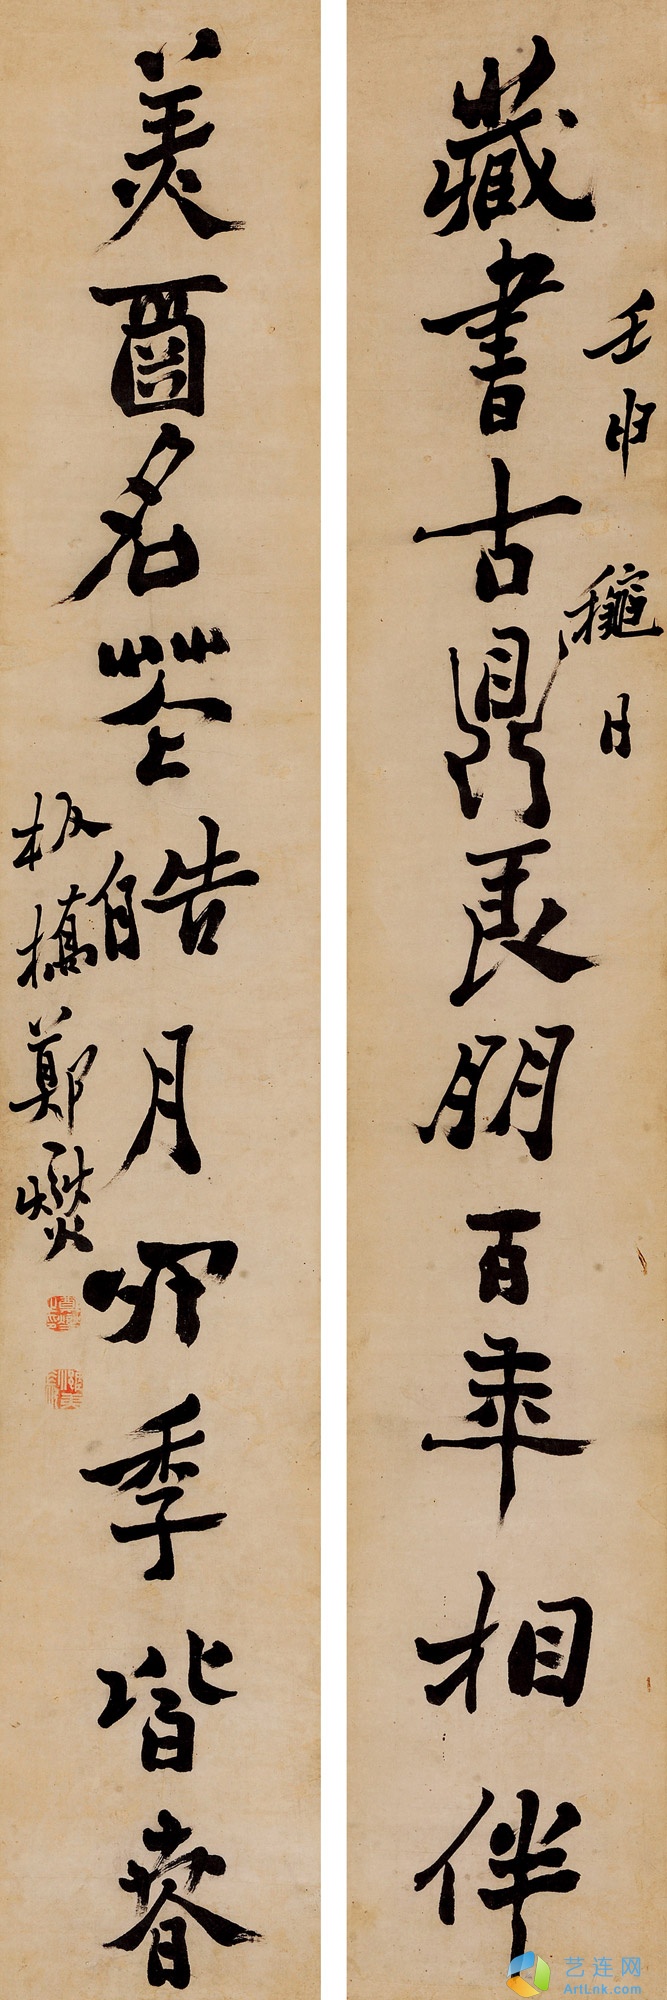 壬申穐月
藏書古鼎良朋百年相伴
美酉名茶皓月四季皆春
板橋鄭燮
艺连网
ArtLnk.com